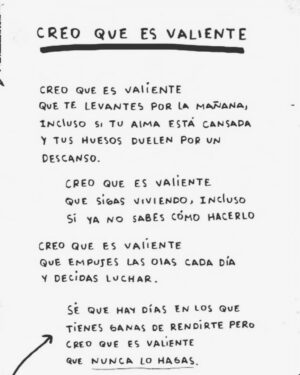 CREO QUE ES VALIENTE
CREO QUE ES VALIENTE
QUE TE LEVANTES POR LA MAÑANA,
INCLUSO SI TU ALMA ESTÁ CANSADA
Y TUS HUESOS DUELEN POR UN
DESCANSO.
CREO QUE ES VALIENTE
QUE SIGAS VIVIENDO, INCLUSO
SI YA NO SABES CÓMO HACERLO
CREO QUE ES VALIENTE
QUE EMPUJES LAS OLAS CADA DÍA
Y DECIDAS LUCHAR.
SÉ QUE HAY DÍAS EN LOS QUE
TIENES GANAS DE RENDIRTE PERO
CREO QUE ES VALIENTE
QUE NUNCA LO HAGAS.